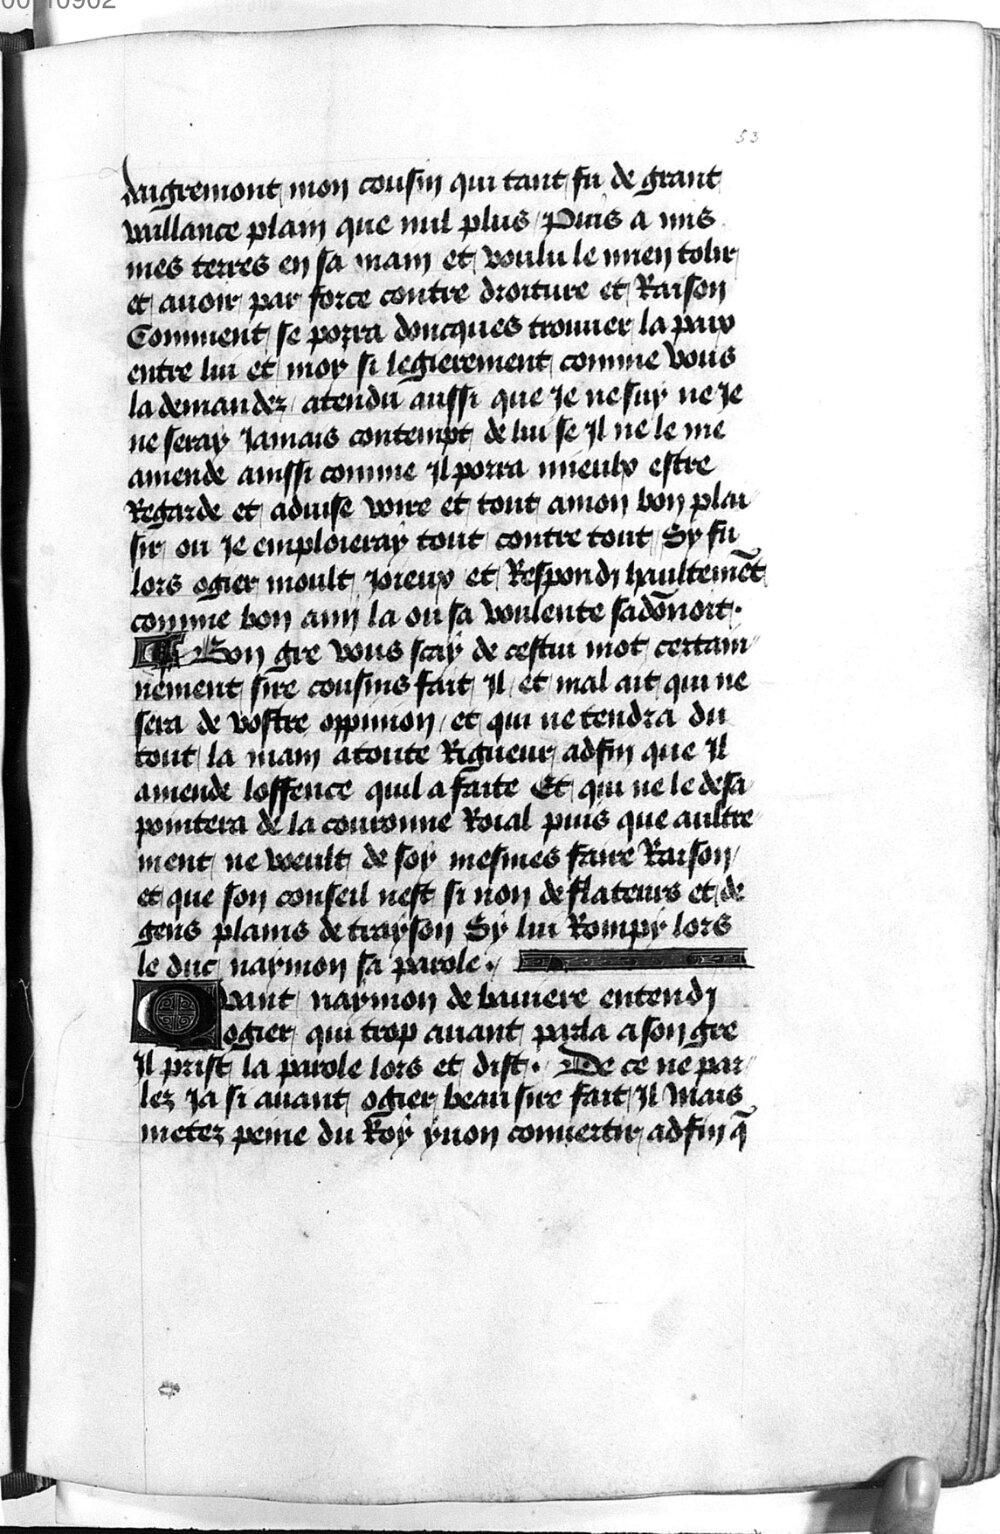 53
daigremont mon cousin qui tant fu de grant
vaillance plain que nul plus / Puis a mis
mes terres en sa main et voulu le mien tolir
et avoir par force contre droiture et Raison
Comment se porra doncques trouver la paix
entre lui et moy si legierement comme vous
la demandez / atendu aussi que Je ne suy ne Je
ne seray Jamais contempt de lui se Il ne le me
amende ainssi comme Il porra mieulx estre
Regarde et advise voire et tout a mon bon plai-
sir ou Je emploieray tout contre tout Sy fu
lors ogier moult Joieux et Respondi haultemēt
comme bon amy la ou sa voulente sadōnoit.
Bon gre vous scay de cestui mot certain-
nement sire cousins fait Il et mal ait qui ne
sera de vostre oppinion / et qui ne tendra du
tout la main a toute Rigueur adfin que Il
amende loffence quil a faite Et qui ne le desa-
pointera de la couronne Roial puis que aultre-
ment ne veult de soy mesmes faire Raison /
et que son conseil nest si non de flateurs et de
gens plains de trayson Sy lui Rompy lors
le duc naymon sa parole.
Quant naymon de baviere entendi
ogier qui trop avant parla a son gre
Il prist la parole lors et dist. De ce ne par-
lez Ja si avant ogier beau sire fait Il Mais
metez peine du Roy yuon convertir adfin q̄